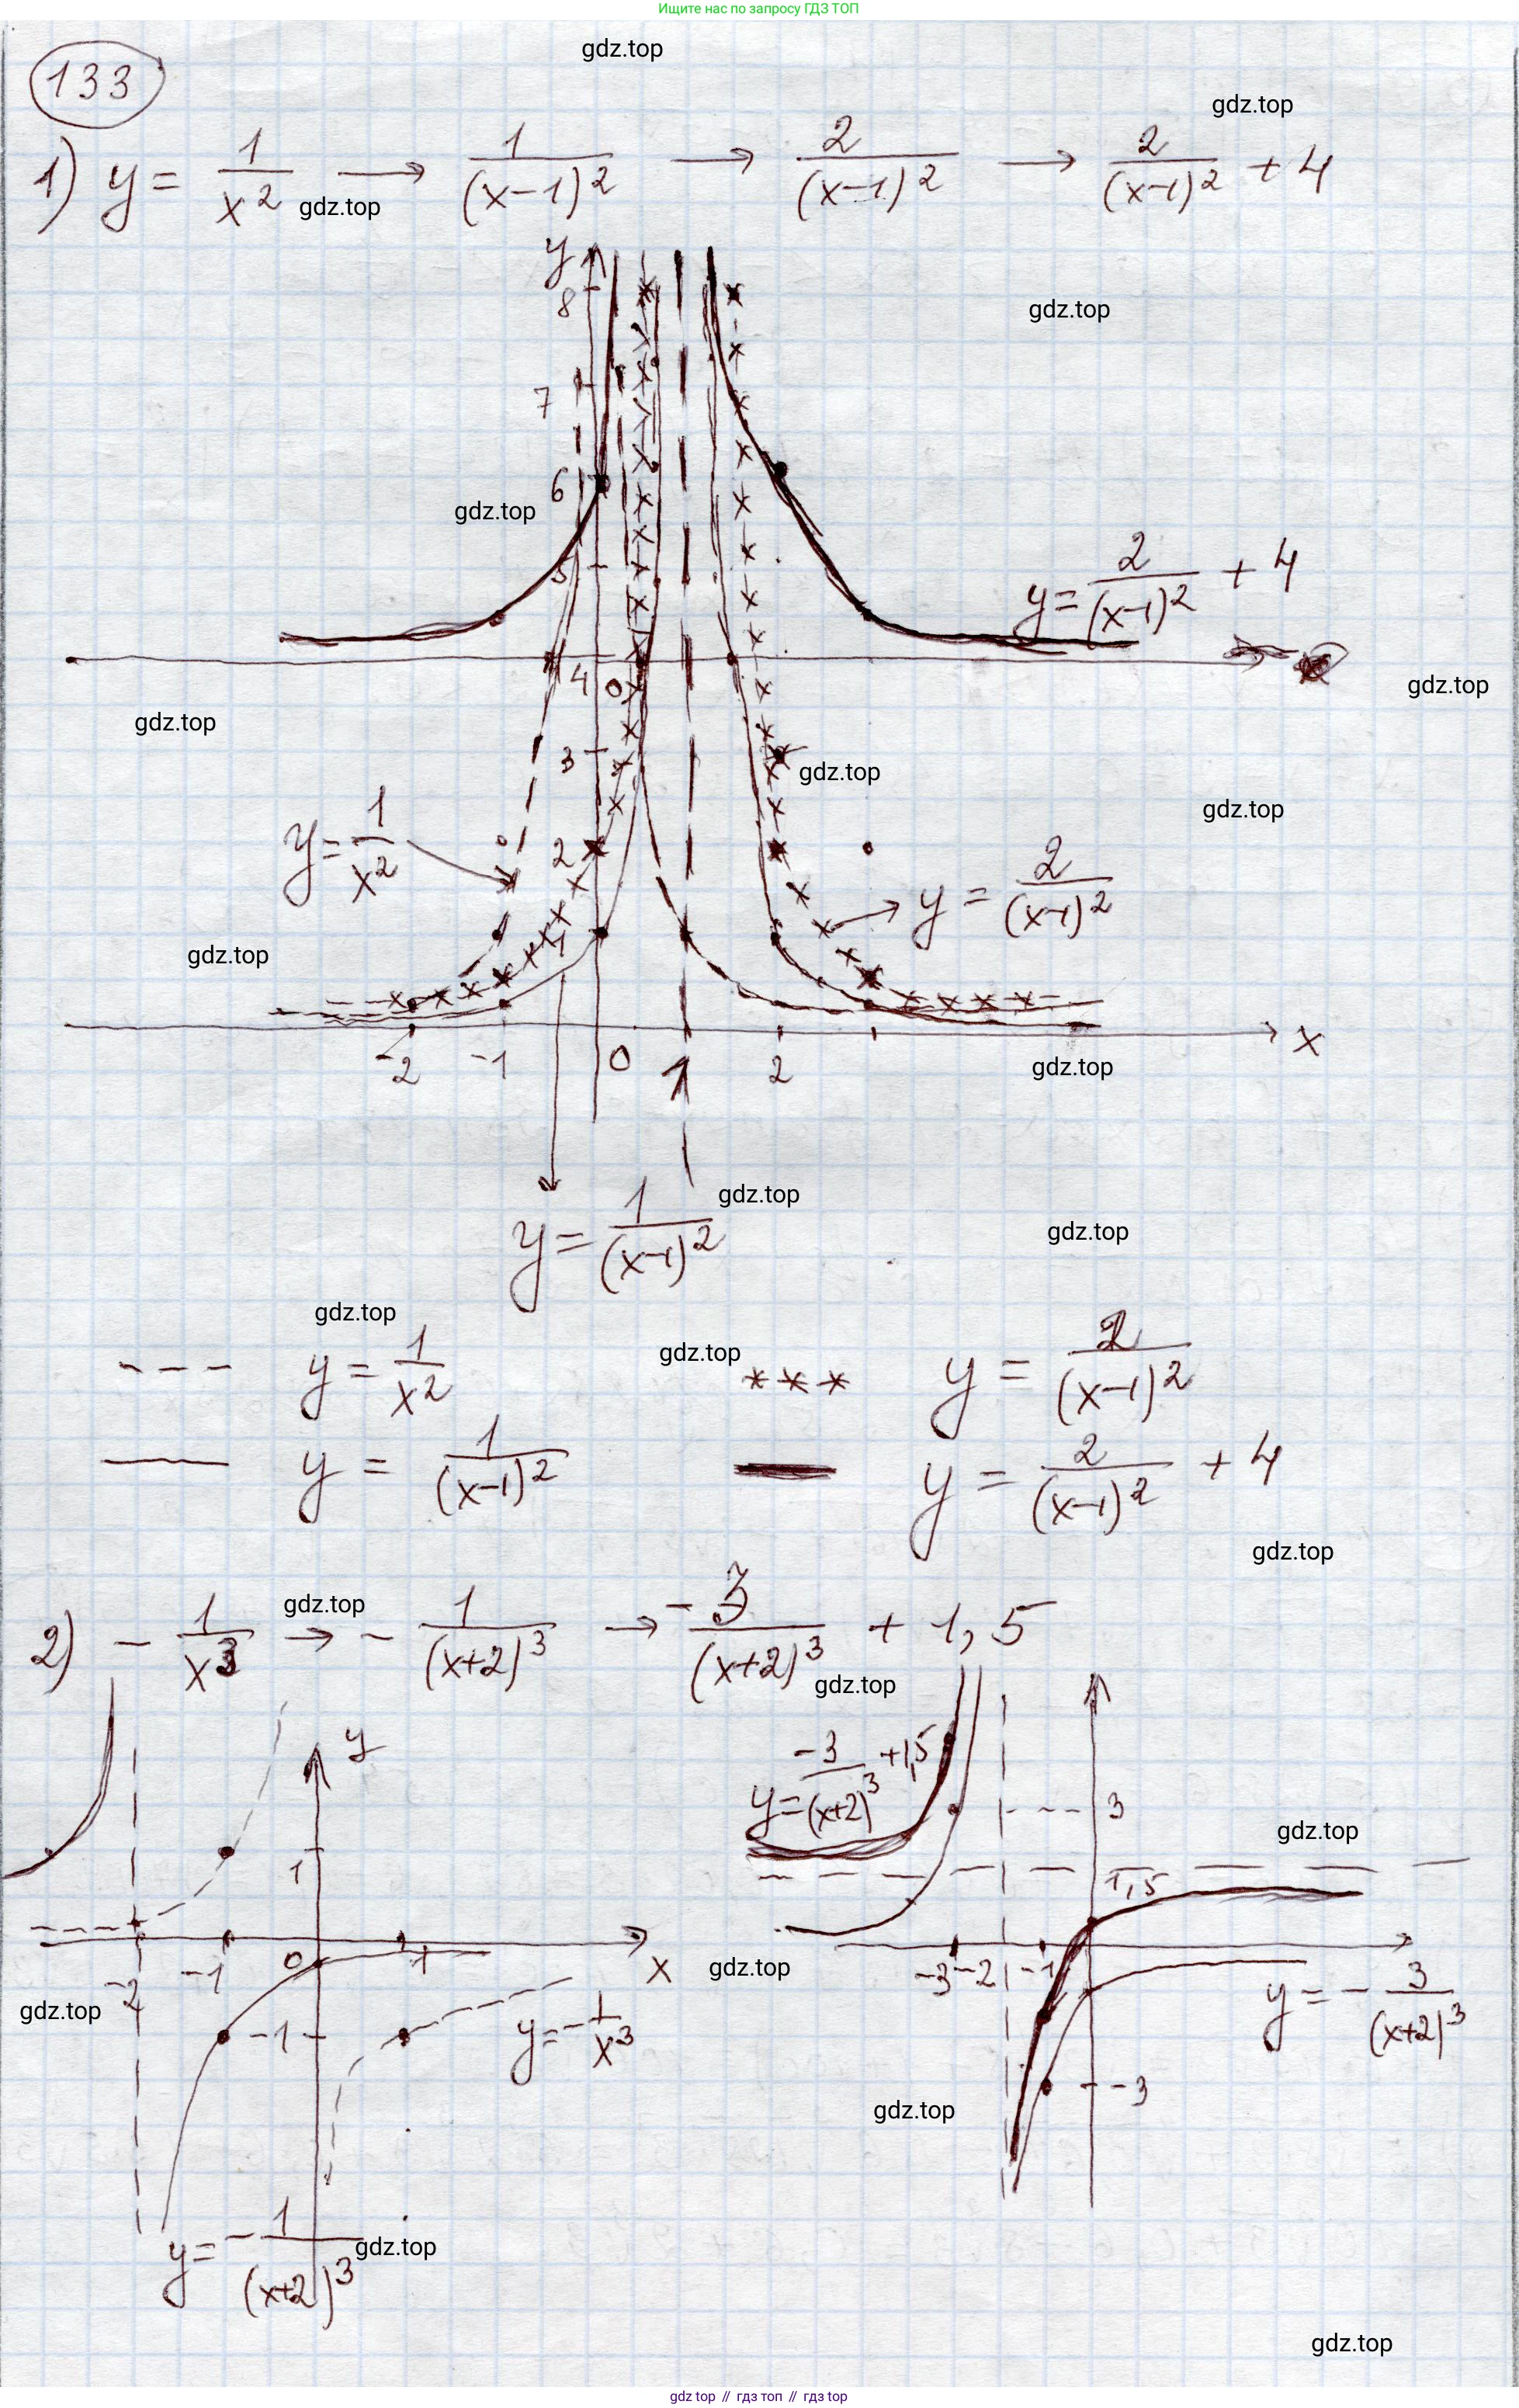 Ищите нас по запросу ГДЗ ТОП
gdz.top
gdz.top
133
1) y = 1/x² → 1/(x-1)² → 2/(x-1)² → 2/(x-1)² + 4
gdz.top
y
8
gdz.top
7
6
gdz.top
5
y = 2/(x-1)² + 4
4
0
gdz.top
gdz.top
3
gdz.top
y = 1/x²
gdz.top
2
y = 2/(x-1)²
1
gdz.top
-2
-1
0
1
2
x
gdz.top
y = 1/(x-1)²
gdz.top
gdz.top
gdz.top
--- y = 1/x²
gdz.top
*** y = 2/(x-1)²
— y = 1/(x-1)²
— y = 2/(x-1)² + 4
gdz.top
2) - 1/x³ → - 1/(x+2)³ → -3/(x+2)³ + 1,5
gdz.top
gdz.top
y
y = -3/(x+2)³ + 1,5
3
gdz.top
1
1,5
0
-2
-1
1
x
gdz.top
-3
-2
-1
gdz.top
-1
y = - 1/x³
y = - 3/(x+2)³
-3
gdz.top
y = - 1/(x+2)³
gdz.top
gdz.top
gdz top // гдз топ // гдз top